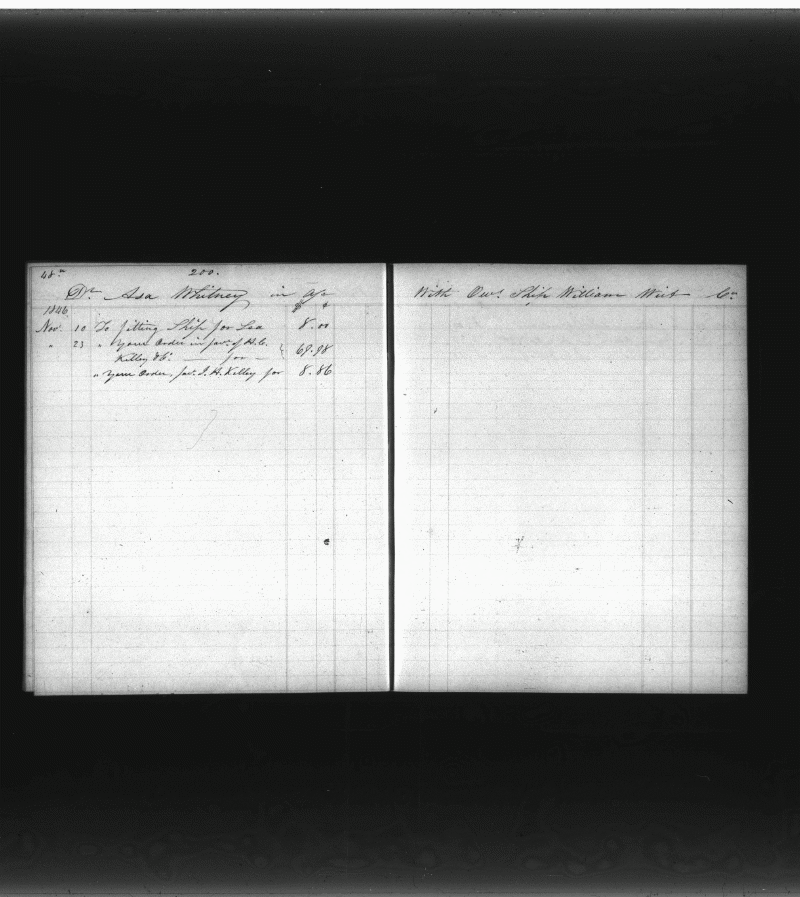 48
200.
Dr Asa Whitney in a/c
With Ows Ship William Wirt Cr
1846
$ ¢
Nov. 10 To fitting Ship for Sea 8.00
" 23 " Your Order in fav. of H.C.
Kelley & Co. — for — 69.98
" Your Order, fav. J. H. Kelley for 8.86